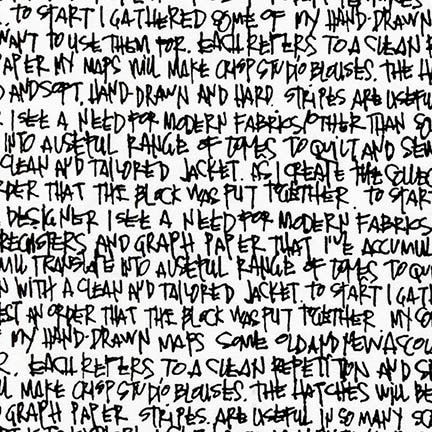 . TO START I GATHERED SOME OF MY HAND-DRAWN
WANT TO USE THEM FOR. EACH REFERS TO A CLEAN
PAPER MY MAPS WILL MAKE CRISP STUDIO BLOUSES. THE HA
D AND SOFT. HAND-DRAWN AND HARD STRIPES ARE USEFUL
I SEE A NEED FOR MODERN FABRICS/OTHER THAN SO
INTO A USEFUL RANGE OF TONES TO QUILT AND SEW
CLEAN AND TAILORED JACKET. AS I CREATE THE COLLEC
RDER THAT THE BLOCK WAS PUT TOGETHER. TO START
DESIGNER I SEE A NEED FOR MODERN FABRICS
AND GRAPH PAPER THAT I'VE ACCUMUL
WILL TRANSLATE INTO A USEFUL RANGE OF TONES TO QU
N WITH A CLEAN AND TAILORED JACKET. TO START I GATH
EST AN ORDER THAT THE BLOCK WAS PUT TOGETHER MY SO
MY HAND-DRAWN MAPS SOME OLD AND NEW
R. EACH REFERS TO A CLEAN REPETITION AND S
LL MAKE CRISP STUDIO BLOUSES. THE HATCHES WILL BE
GRAPH PAPER STRIPES. ARE USEFUL IN SO MANY SC